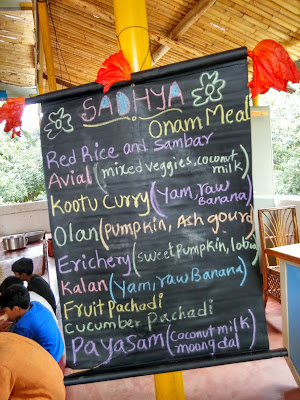 SADHYA
Onam Meal
Red Rice and Sambar
Avial (mixed veggies, coconut milk)
Kootu Curry (Yam, raw Banana)
Olan (Pumpkin, Ash gourd)
Erichery (sweet Pumpkin, lobia)
Kalan (Yam, raw Banana)
Fruit Pachadi
cucumber Pachadi
Payasam (Coconut milk moong dal)